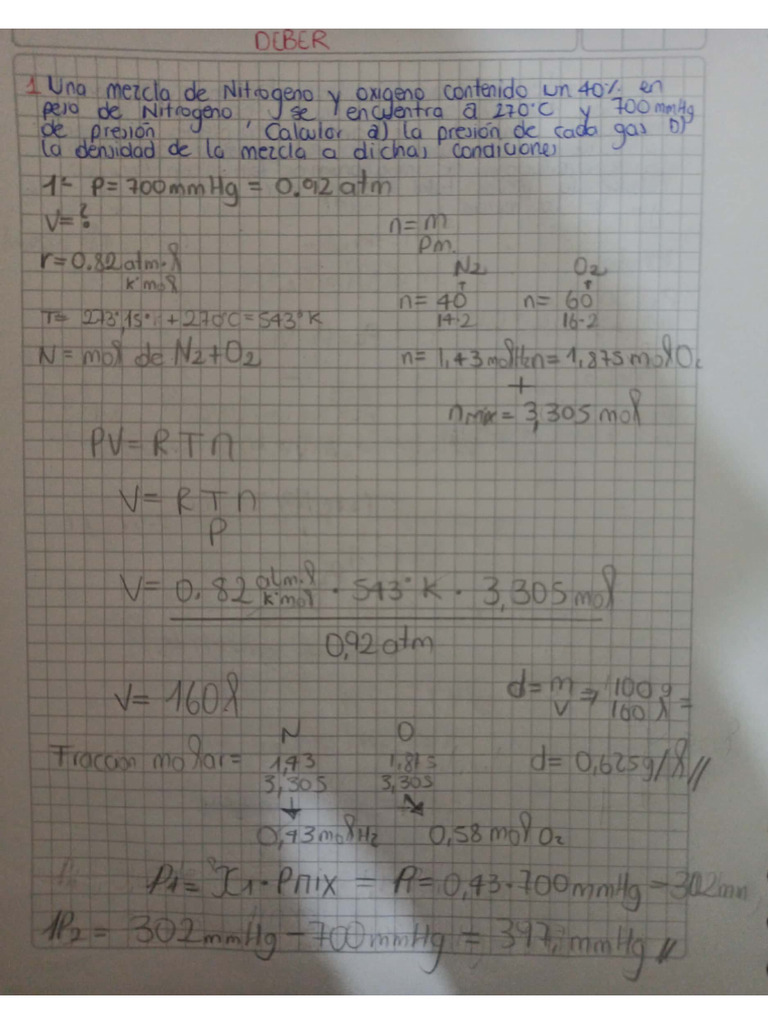 DEBER
1 Una mezcla de Nitrogeno y oxigeno contenido un 40% en
peso de Nitrogeno, se encuentra a 270°C y 700 mmHg
de presión, Calcular a) la presión de cada gas b)
la densidad de la mezcla a dichas condiciones
1- P=700mmHg = 0.92 atm
V=?
n=m
Pm.
r=0.82 atm·l
k°mol
N2 O2
n= 40 n= 60
14·2 16·2
T= 273,15° + 270°C = 543°K
N= mol de N2+O2
n= 1,43 mol n=1,875 mol O2
+
nmix = 3,305 mol
PV= R T n
V= R T n
P
V= 0.82 atm.l / k°mol · 543°K · 3,305 mol
0,92 atm
V= 160 l
d= m ⇒ 100g =
V 160 l
N O
Fraccion molar = 1,43 1,875
3,305 3,305
d= 0,625g/l //
0,43 mol H2 0,58 mol O2
P1= X1·Pmix = P=0,43·700mmHg = 302mm
1P2 = 302mmHg - 700mmHg = 397, mmHg //